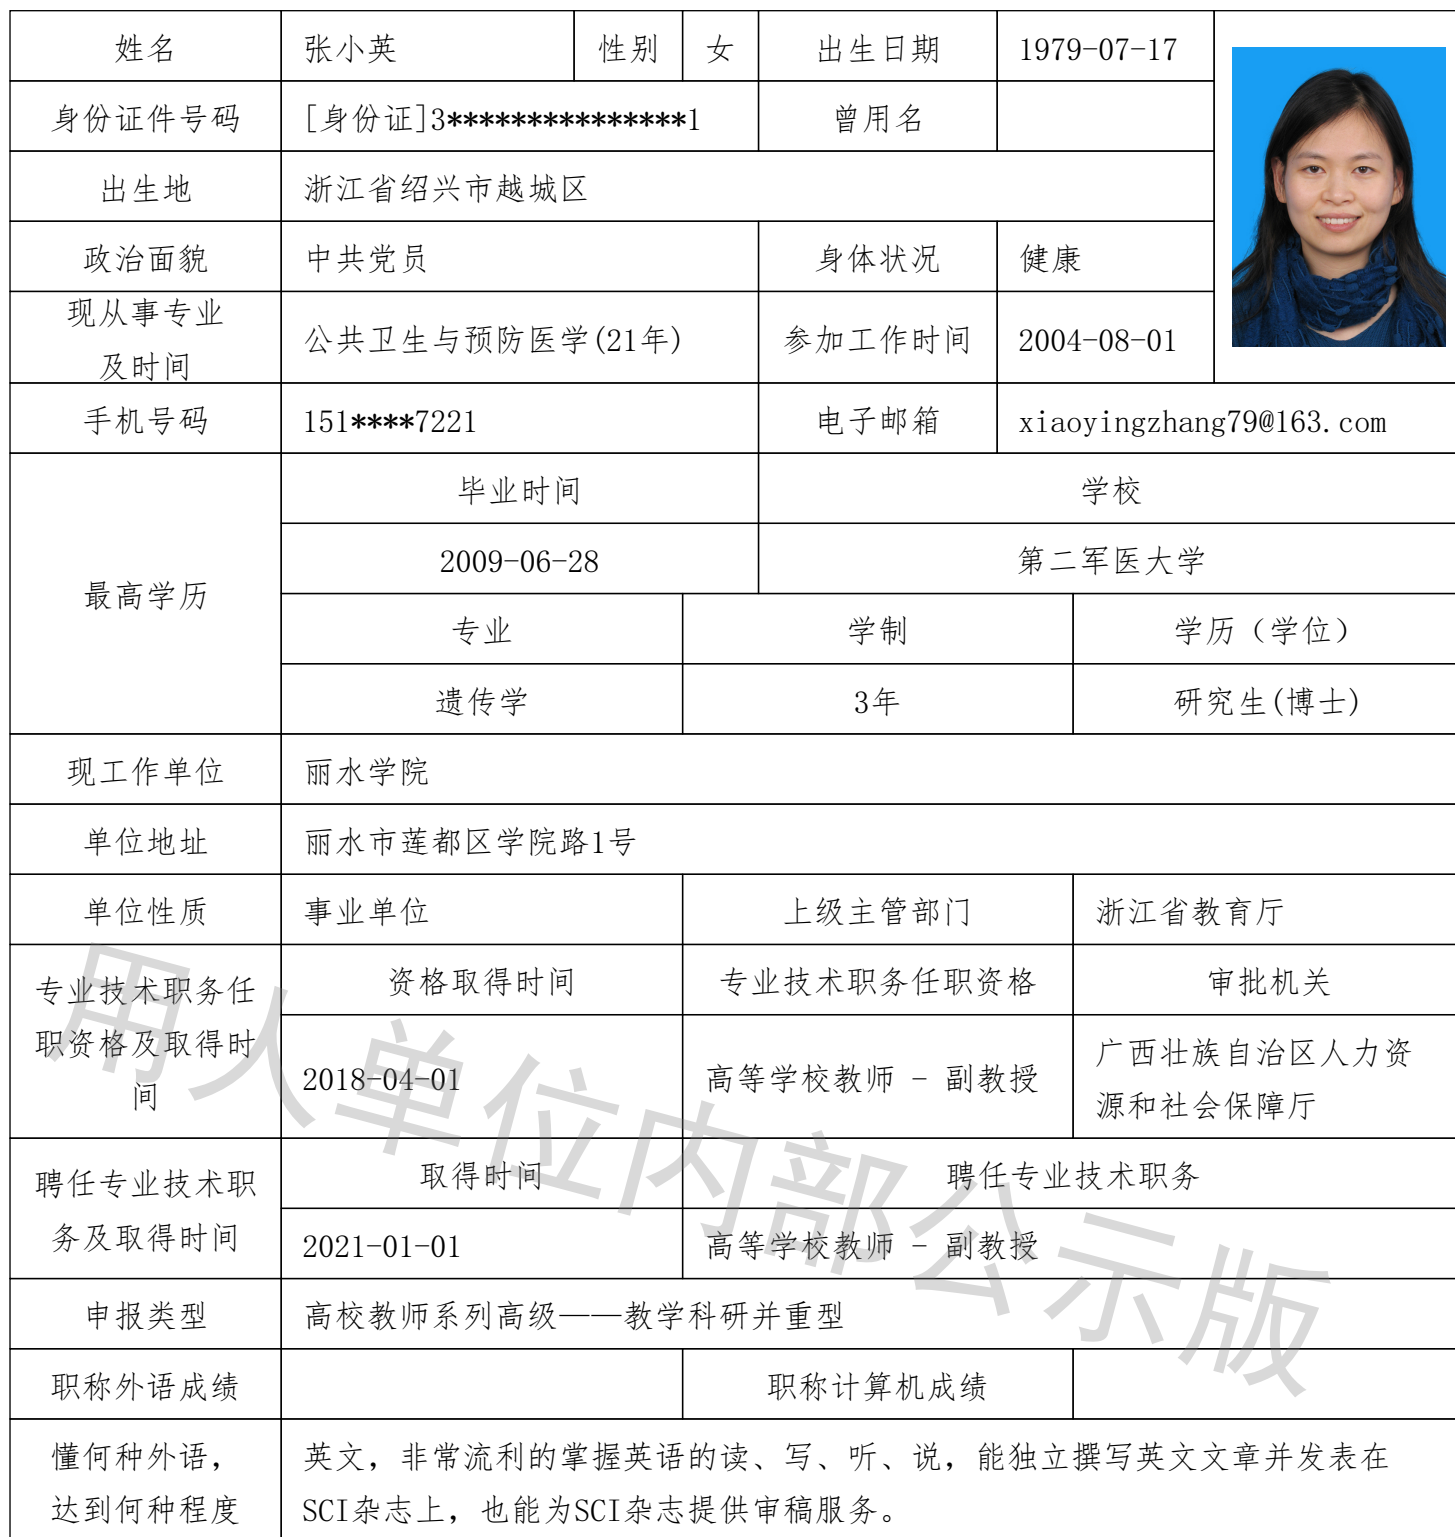 姓名 张小英 性别 女 出生日期 1979-07-17
身份证件号码 [身份证]3***************1 曾用名
出生地 浙江省绍兴市越城区
政治面貌 中共党员 身体状况 健康
现从事专业
及时间 公共卫生与预防医学(21年) 参加工作时间 2004-08-01
手机号码 151****7221 电子邮箱 xiaoyingzhang79@163.com
最高学历
毕业时间 学校
2009-06-28 第二军医大学
专业 学制 学历（学位）
遗传学 3年 研究生(博士)
现工作单位 丽水学院
单位地址 丽水市莲都区学院路1号
单位性质 事业单位 上级主管部门 浙江省教育厅
专业技术职务任
职资格及取得时
间
资格取得时间 专业技术职务任职资格 审批机关
2018-04-01 高等学校教师 - 副教授 广西壮族自治区人力资
源和社会保障厅
聘任专业技术职
务及取得时间
取得时间 聘任专业技术职务
2021-01-01 高等学校教师 - 副教授
申报类型 高校教师系列高级——教学科研并重型
职称外语成绩 职称计算机成绩
懂何种外语，
达到何种程度
英文，非常流利的掌握英语的读、写、听、说，能独立撰写英文文章并发表在
SCI杂志上，也能为SCI杂志提供审稿服务。
用人单位内部公示版